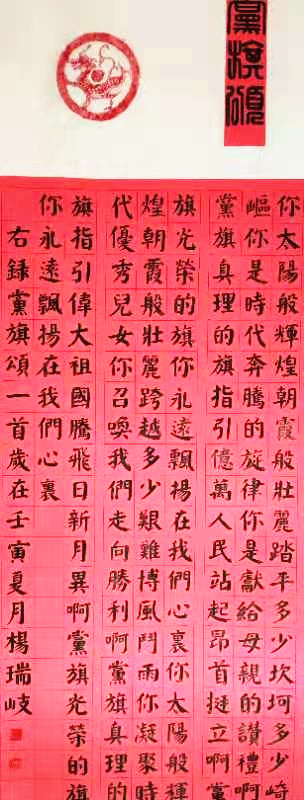 黨旗頌
你太陽般輝煌朝霞般壯麗踏平多少坎坷多少崎
嶇你是時代奔騰的旋律你是獻給母親的讚禮啊
黨旗真理的旗指引億萬人民站起昂首挺立啊黨
旗光榮的旗你永遠飄揚在我們心裏你太陽般輝
煌朝霞般壯麗跨越多少艱難搏風鬥雨你凝聚時
代優秀兒女你召喚我們走向勝利啊黨旗真理的
旗指引偉大祖國騰飛日新月異啊黨旗光榮的旗
你永遠飄揚在我們心裏
右錄黨旗頌一首歲在壬寅夏月楊瑞岐